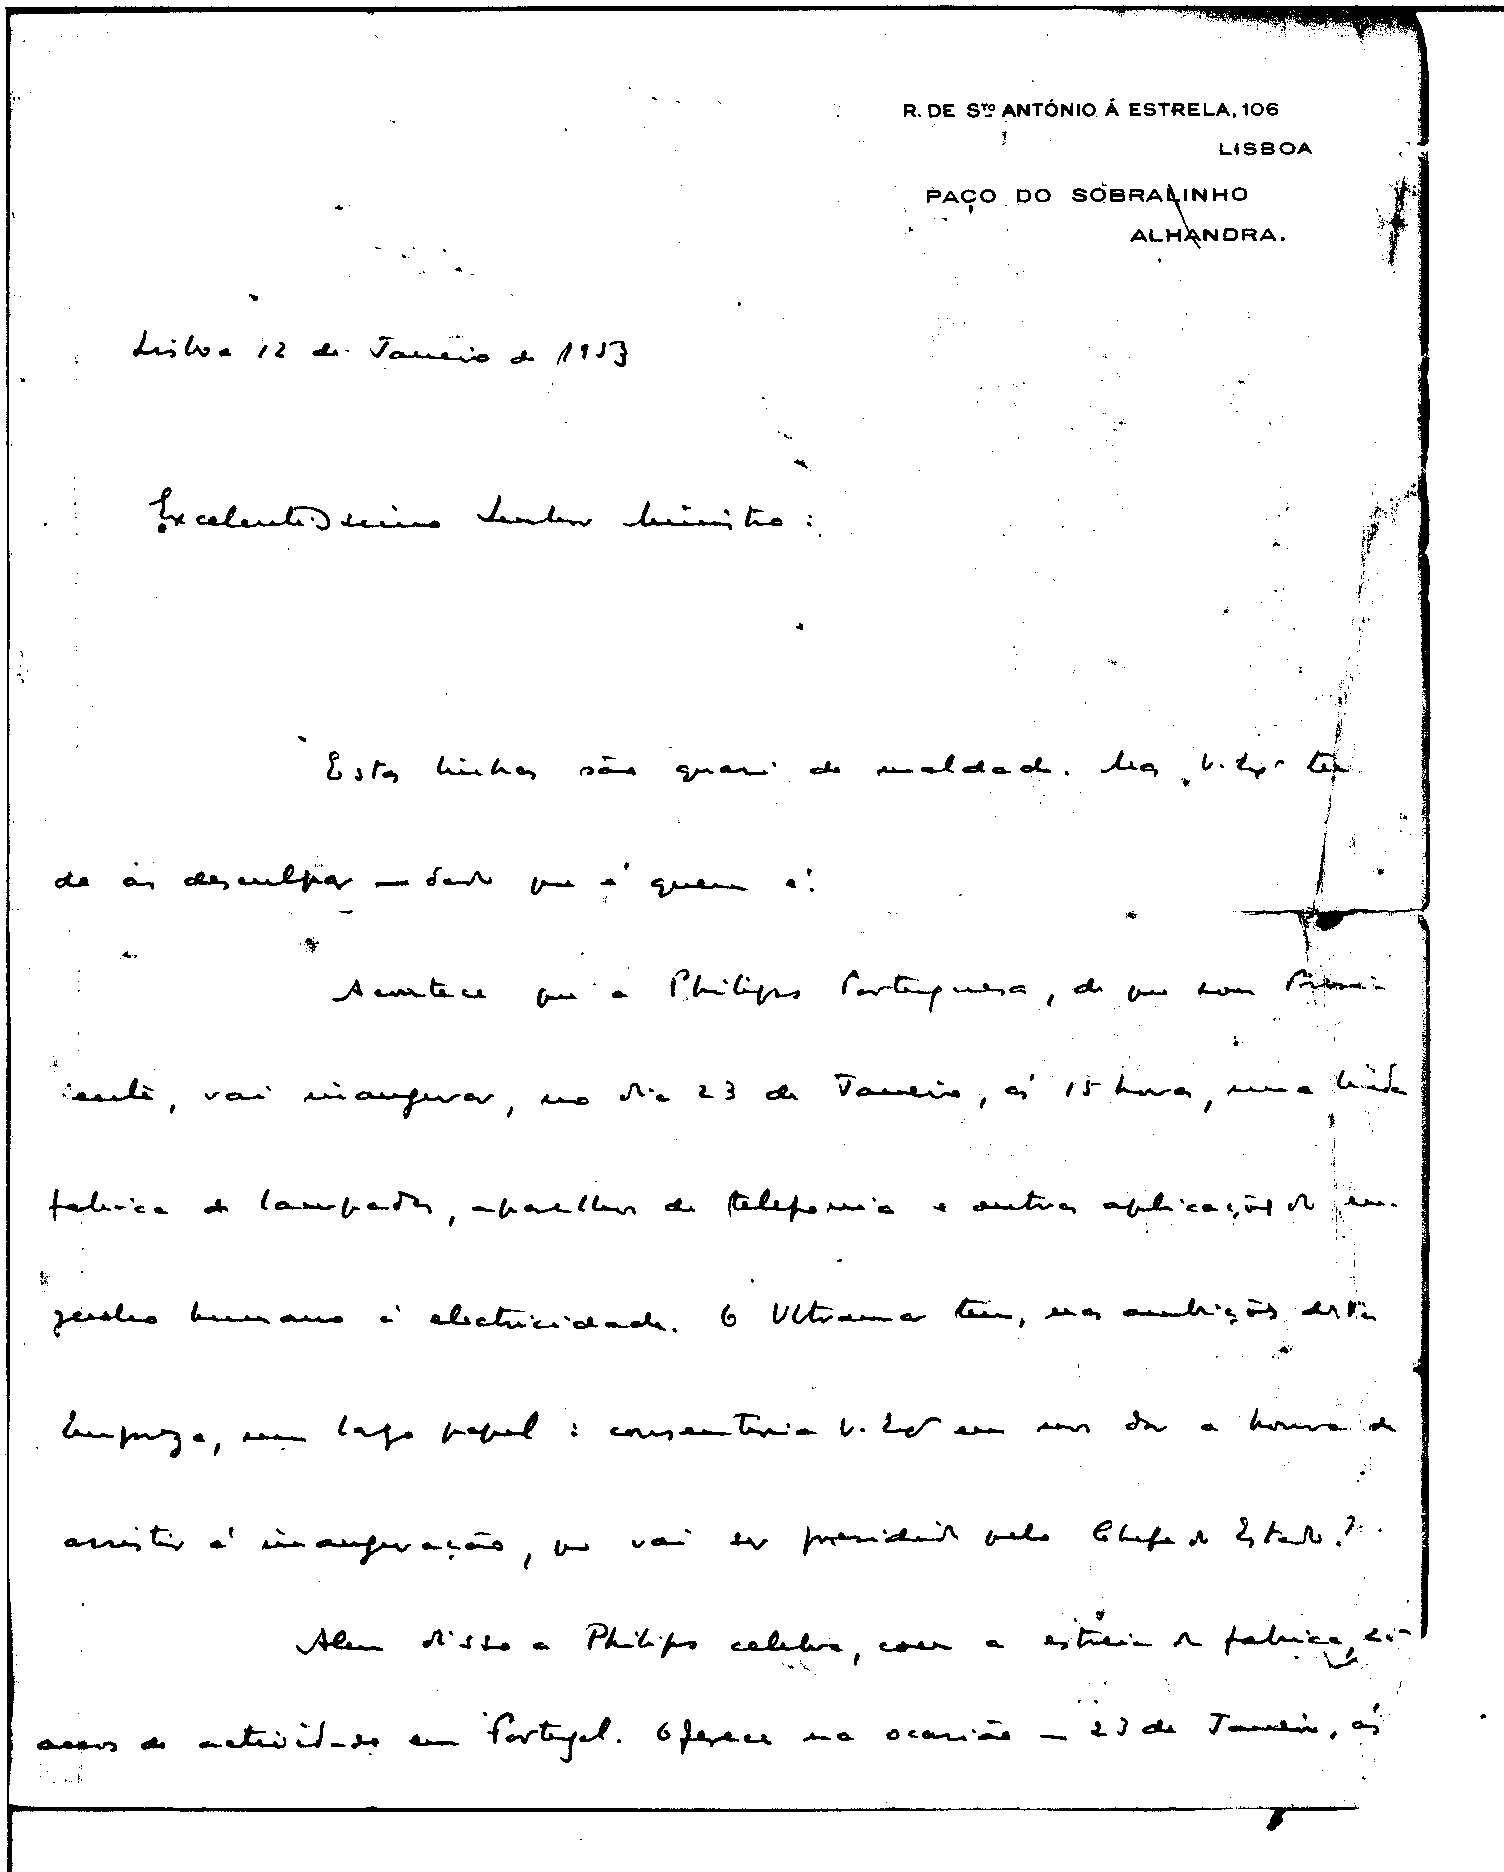 R. DE STO ANTÓNIO Á ESTRELA, 106
LISBOA
PAÇO DO SOBRALINHO
ALHANDRA.
Lisboa 12 de Janeiro de 1953
Excelentissimo Senhor Ministro:
Estas linhas são quasi de maldade. Mas V. Exª tem
de as desculpar — dado que é quem é!
Acontece que a Philips Portuguesa, de que sou Presi-
dente, vai inaugurar, no dia 23 de Janeiro, ás 15 horas, uma linda
fabrica de lampadas, aparelhos de telefonia e outras aplicações do en-
genho humano á electricidade. O Ultramar tem, nas ambições desta
Empreza, um largo papel: consentiria V. Exª em nos dar a honra de
assistir á inauguração, que vai ser presidida pelo Chefe do Estado?
Alem disso a Philips celebra, com a estreia da fabrica,
anos de actividade em Portugal. Oferece na ocasião — 23 de Janeiro, ás